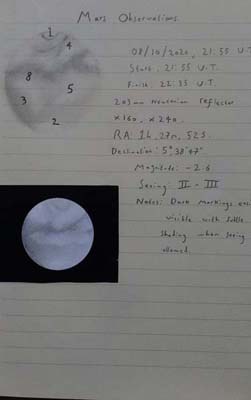 Mars Observations.
1
4
8
5
3
2
08/10/2020, 21:55 U.T.
Start: 21:55 U.T.
Finish: 22:35 U.T.
203mm Newtonian reflector
x160, x240
RA: 1h, 27m, 52s
Declination: 5° 38' 47"
Magnitude: -2.6
Seeing: II - III
Notes: Dark Markings
visible with subtle
shading when seeing
allowed.